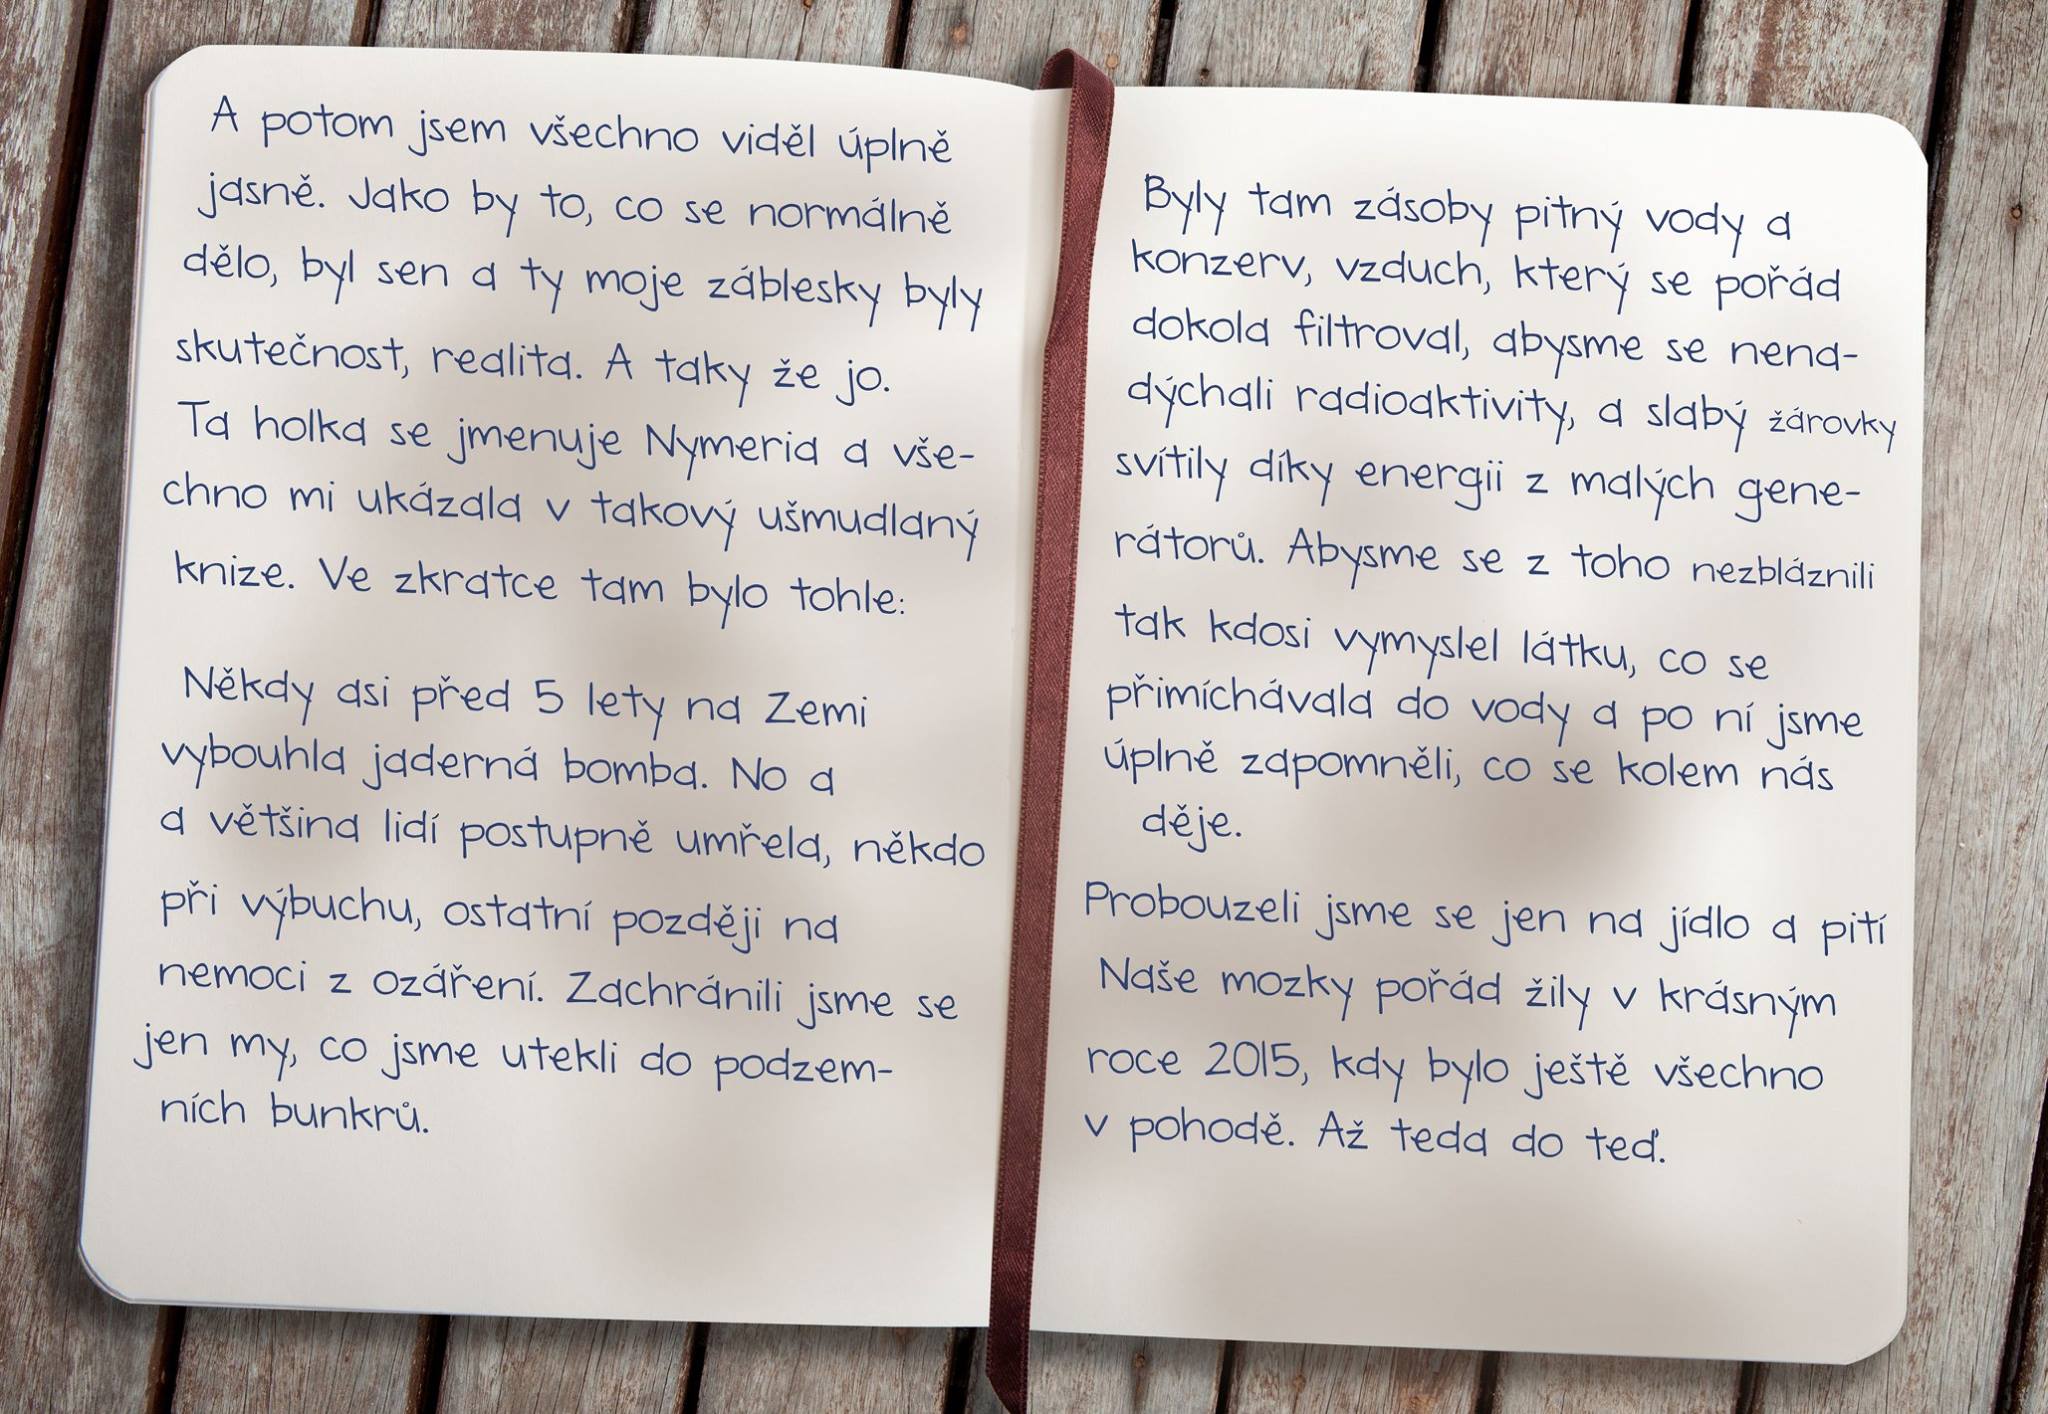 A potom jsem všechno viděl úplně
jasně. Jako by to, co se normálně
dělo, byl sen a ty moje záblesky byly
skutečnost, realita. A taky že jo.
Ta holka se jmenuje Nymeria a vše-
chno mi ukázala v takový ušmudlaný
knize. Ve zkratce tam bylo tohle:
Někdy asi před 5 lety na Zemi
vybouhla jaderná bomba. No a
a většina lidí postupně umřela, někdo
při výbuchu, ostatní později na
nemoci z ozáření. Zachránili jsme se
jen my, co jsme utekli do podzem-
ních bunkrů.
Byly tam zásoby pitný vody a
konzerv, vzduch, který se pořád
dokola filtroval, abysme se nena-
dýchali radioaktivity, a slabý žárovky
svítily díky energii z malých gene-
rátorů. Abysme se z toho nezbláznili
tak kdosi vymyslel látku, co se
přimíchávala do vody a po ní jsme
úplně zapomněli, co se kolem nás
děje.
Probouzeli jsme se jen na jídlo a pití
Naše mozky pořád žily v krásným
roce 2015, kdy bylo ještě všechno
v pohodě. Až teda do teď.